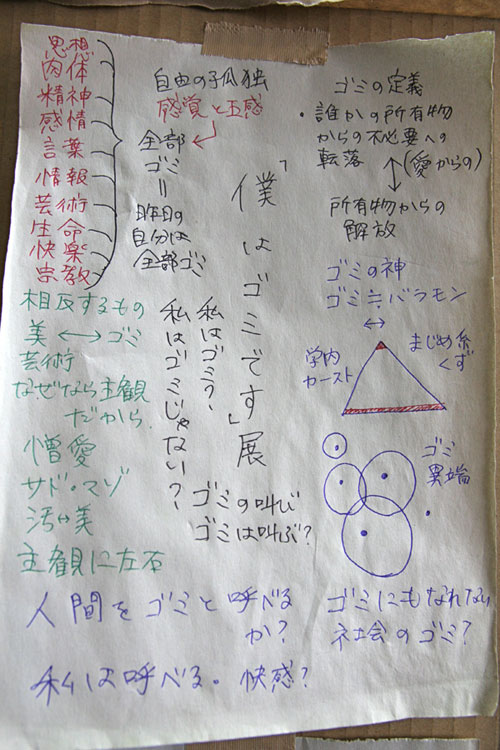 思想
肉体
精神
感情
言葉
情報
芸術
生命
快楽
宗教
自由の孤独
感覚と五感
全部
ゴミ
＝
昨日の
自分は
全部ゴミ
「僕はゴミです」展
私はゴミ？
私はゴミじゃない？
ゴミの叫び
ゴミは叫ぶ？
ゴミの定義
・誰かの所有物
からの不必要への
転落
↕(愛からの)
所有物からの
解放
ゴミの神
ゴミ≒バラモン
↔
学内
カースト
まじめ系
くず
ゴミ
異端
相反するもの
美↔ゴミ
芸術
なぜなら主観
だから
憎愛
サド・マゾ
汚↔美
主観に左右
人間をゴミと呼べる
か？
私は呼べる。快感？
ゴミにもなれない
社会のゴミ？